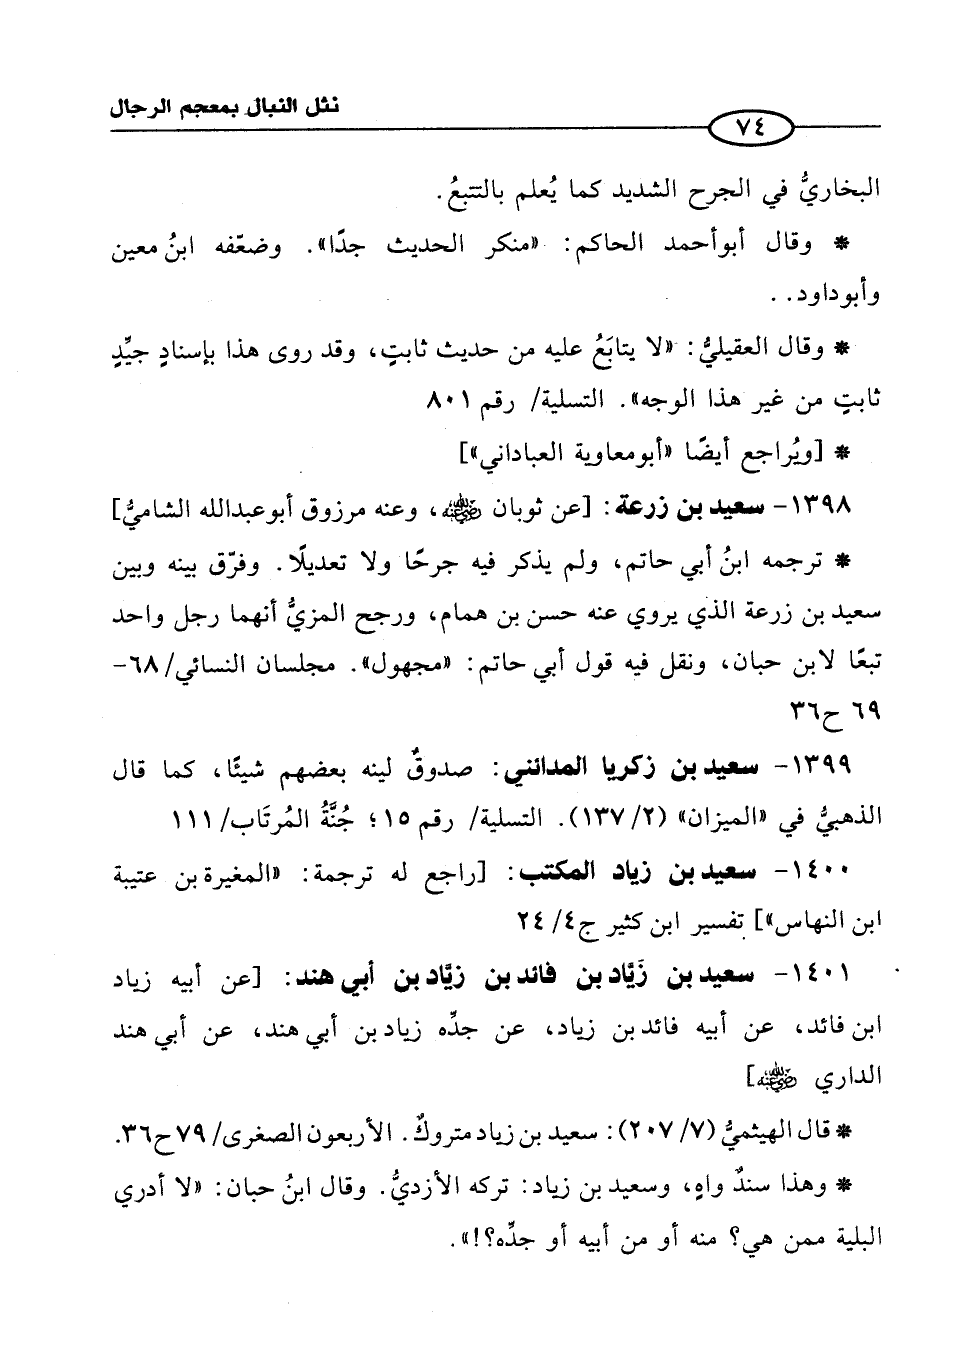 نثل النبال بمعجم الرجال
٧٤
البخاريُّ في الجرح الشديد كما يُعلم بالتتبعُ.
* وقال أبوأحمد الحاكم: «منكر الحديث جدًّا». وضعّفه ابنُ معين
وأبوداود..
* وقال العقيليُّ: «لا يتابَعُ عليه من حديث ثابتٍ، وقد روى هذا بإسنادٍ جيِّدٍ
ثابتٍ من غير هذا الوجه». التسلية/ رقم ٨٠١
* [ويُراجع أيضًا «أبومعاوية العباداني»]
١٣٩٨- سعيد بن زرعة: [عن ثوبان رضي الله عنه، وعنه مرزوق أبوعبدالله الشاميُّ]
* ترجمه ابنُ أبي حاتم، ولم يذكر فيه جرحًا ولا تعديلًا. وفرّق بينه وبين
سعيد بن زرعة الذي يروي عنه حسن بن همام، ورجح المزيُّ أنهما رجل واحد
تبعًا لابن حبان، ونقل فيه قول أبي حاتم: «مجهول». مجلسان النسائي/ ٦٨-
٦٩ ح٣٦
١٣٩٩- سعيد بن زكريا المدائني: صدوقٌ لينه بعضهم شيئًا، كما قال
الذهبيُّ في «الميزان» (٢/ ١٣٧). التسلية/ رقم ١٥؛ جُنَّةُ المُرتَاب/ ١١١
١٤٠٠- سعيد بن زياد المكتب: [راجع له ترجمة: «المغيرة بن عتيبة
ابن النهاس»] تفسير ابن كثير ج٤/ ٢٤
١٤٠١- سعيد بن زَيَّاد بن فائد بن زيَّاد بن أبي هند: [عن أبيه زياد
ابن فائد، عن أبيه فائد بن زياد، عن جدِّه زياد بن أبي هند، عن أبي هند
الداري رضي الله عنه]
* قال الهيثميُّ (٧/ ٢٠٧): سعيد بن زياد متروكٌ. الأربعون الصغرى/ ٧٩ ح٣٦.
* وهذا سندٌ واهٍ، وسعيد بن زياد: تركه الأزديُّ. وقال ابنُ حبان: «لا أدري
البلية ممن هي؟ منه أو من أبيه أو جدِّه؟!».